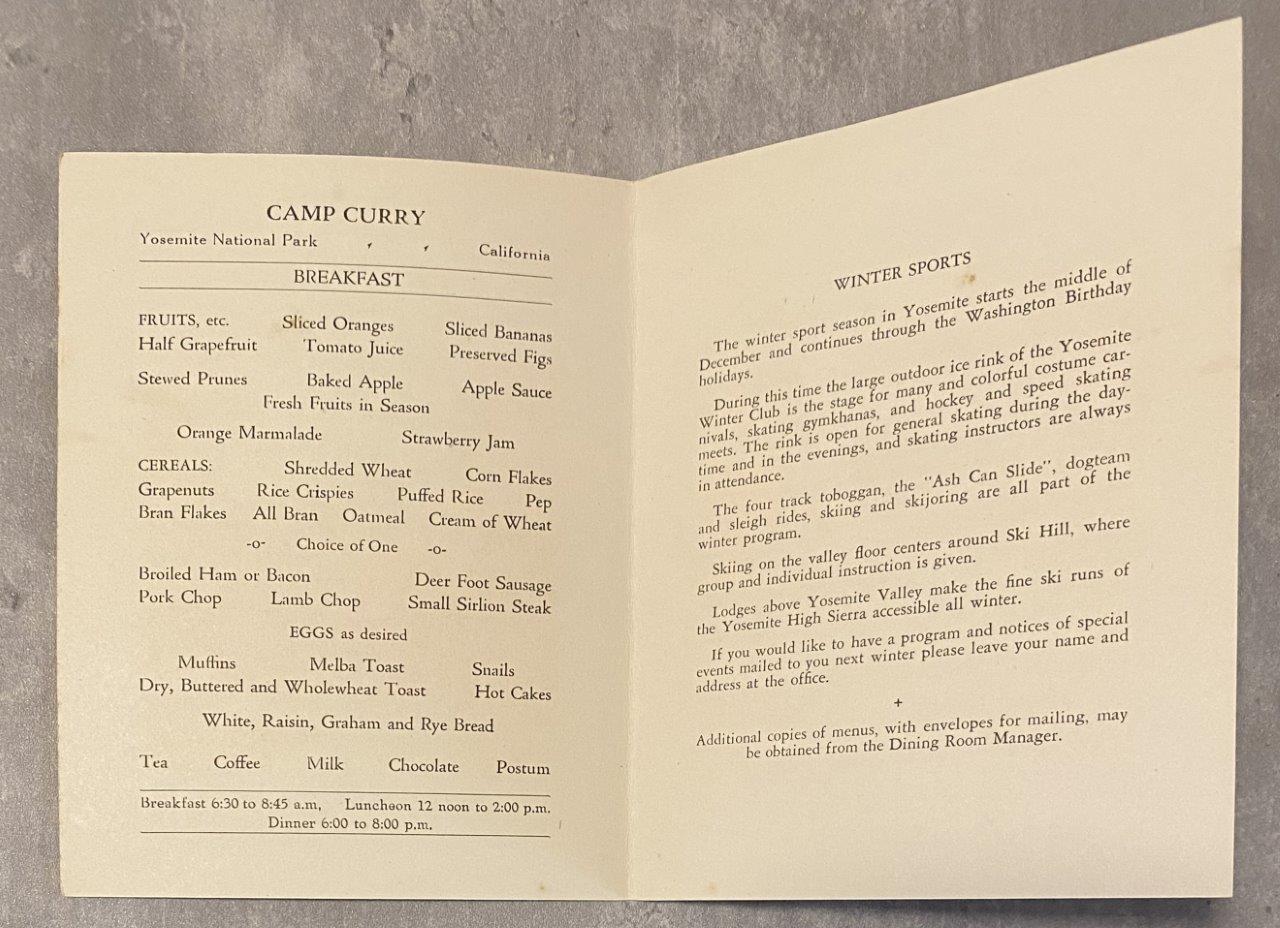 CAMP CURRY
Yosemite National Park , , California
BREAKFAST
FRUITS, etc. Sliced Oranges Sliced Bananas
Half Grapefruit Tomato Juice Preserved Figs
Stewed Prunes Baked Apple Apple Sauce
Fresh Fruits in Season
Orange Marmalade Strawberry Jam
CEREALS: Shredded Wheat Corn Flakes
Grapenuts Rice Crispies Puffed Rice Pep
Bran Flakes All Bran Oatmeal Cream of Wheat
-o- Choice of One -o-
Broiled Ham or Bacon Deer Foot Sausage
Pork Chop Lamb Chop Small Sirlion Steak
EGGS as desired
Muffins Melba Toast Snails
Dry, Buttered and Wholewheat Toast Hot Cakes
White, Raisin, Graham and Rye Bread
Tea Coffee Milk Chocolate Postum
Breakfast 6:30 to 8:45 a.m, Luncheon 12 noon to 2:00 p.m.
Dinner 6:00 to 8:00 p.m.
WINTER SPORTS
The winter sport season in Yosemite starts the middle of
December and continues through the Washington Birthday
holidays.
During this time the large outdoor ice rink of the Yosemite
Winter Club is the stage for many and colorful costume car-
nivals, skating gymkhanas, and hockey and speed skating
meets. The rink is open for general skating during the day-
time and in the evenings, and skating instructors are always
in attendance.
The four track toboggan, the "Ash Can Slide", dogteam
and sleigh rides, skiing and skijoring are all part of the
winter program.
Skiing on the valley floor centers around Ski Hill, where
group and individual instruction is given.
Lodges above Yosemite Valley make the fine ski runs of
the Yosemite High Sierra accessible all winter.
If you would like to have a program and notices of special
events mailed to you next winter please leave your name and
address at the office.
+
Additional copies of menus, with envelopes for mailing, may
be obtained from the Dining Room Manager.